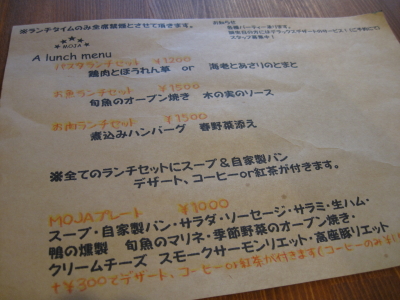 ※ランチタイムのみ全席禁煙とさせて頂きます。
お知らせ
各種パーティー承ります。
スタッフ募集中！
MOJA
A lunch menu
パスタランチセット ￥1200
鶏肉とほうれん草 or 海老とあさりのとまと
お魚ランチセット ￥1500
旬魚のオーブン焼き 木の実のソース
お肉ランチセット ￥1500
煮込みハンバーグ 春野菜添え
※全てのランチセットにスープ＆自家製パン
デザート、コーヒーor紅茶が付きます。
MOJAプレート ￥1000
スープ・自家製パン・サラダ・ソーセージ・サラミ・生ハム・
鴨の燻製 旬魚のマリネ・季節野菜のオーブン焼き・
クリームチーズ スモークサーモンリエット・高座豚リエット
+￥300でデザート、コーヒーor紅茶が付きます(コーヒーのみ